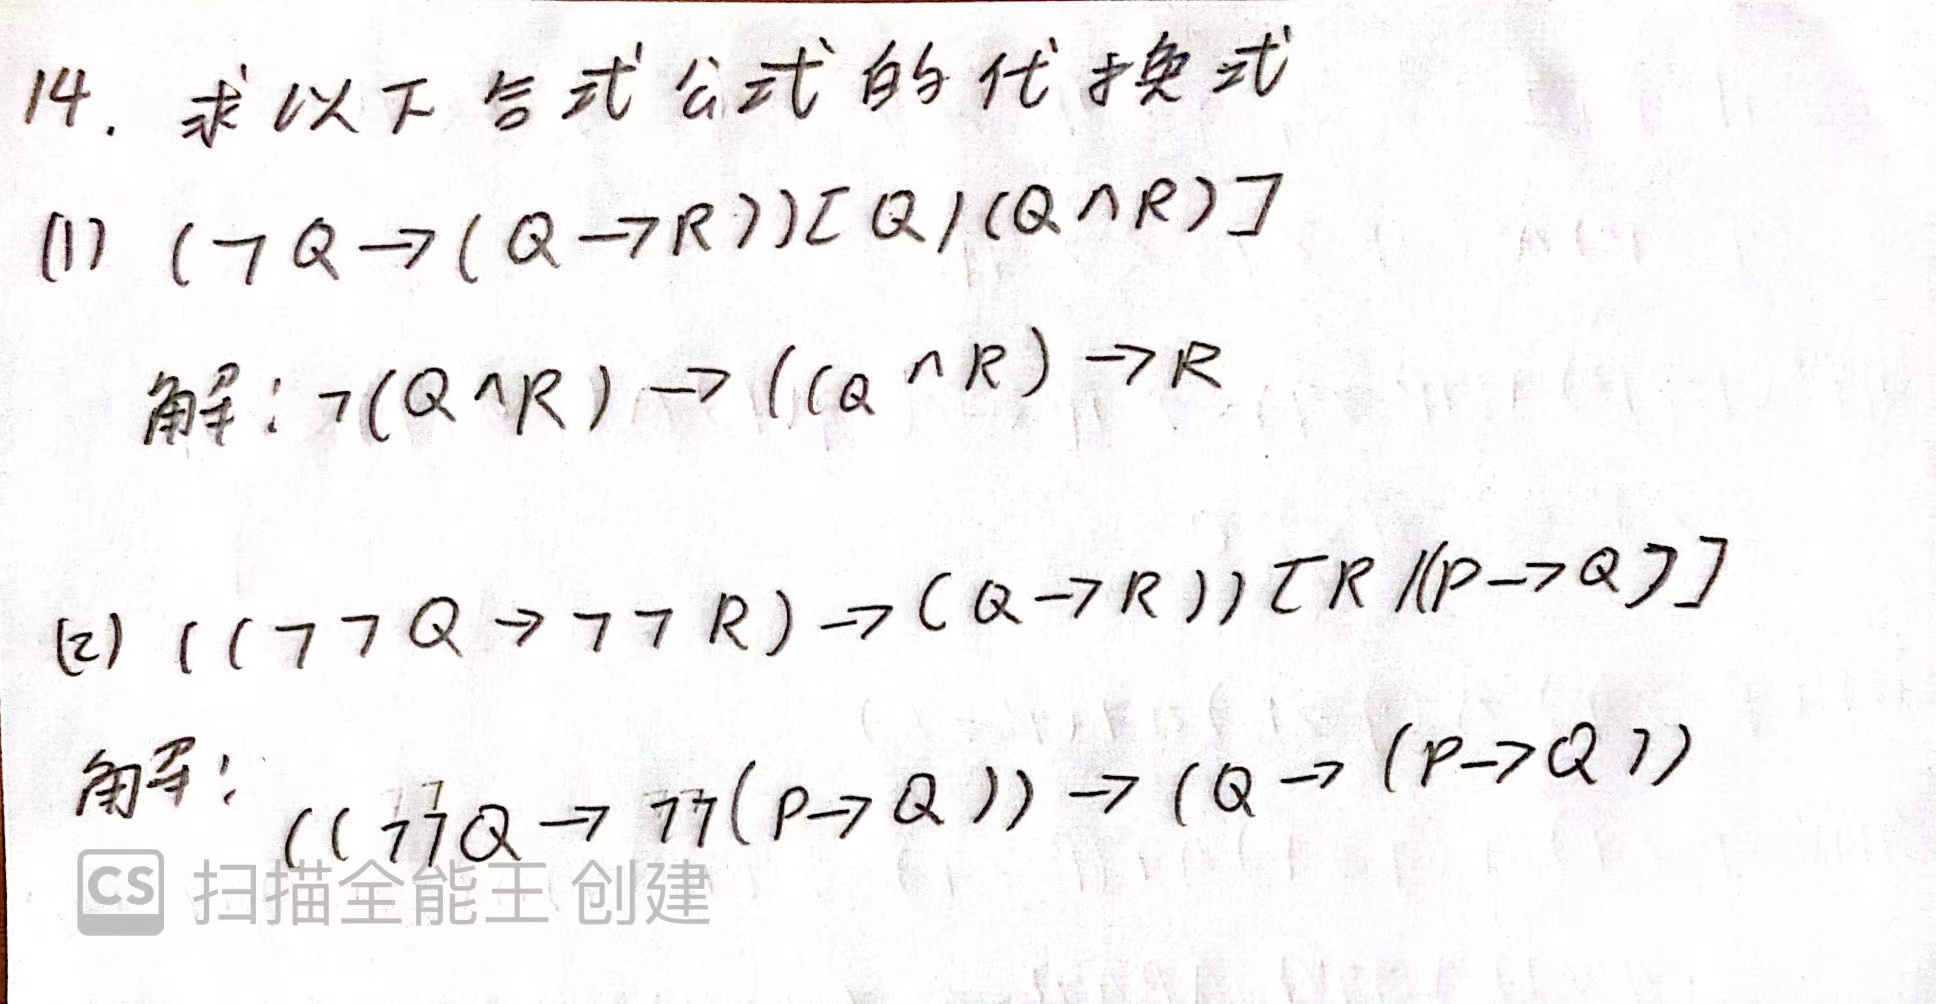 14. 求以下合式公式的代换式
(1) (¬Q→(Q→R))[Q/(Q∧R)]
解:¬(Q∧R)→((Q∧R)→R
(2) ((¬¬Q→¬¬R)→(Q→R))[R/(P→Q)]
解:((¬¬Q→¬¬(P→Q))→(Q→(P→Q))
CS 扫描全能王 创建